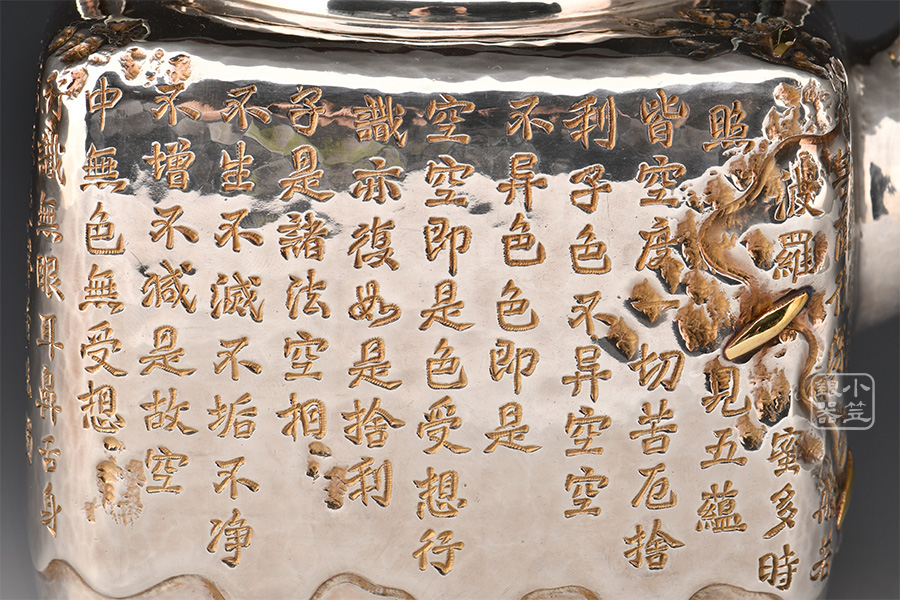 般若
波羅蜜多時
照見五蘊
皆空度一切苦厄捨
利子色不异空空
不异色色即是
空空即是色受想行
識亦復如是捨利
子是諸法空相
不生不滅不垢不净
不增不减是故空
中無色無受想
行識無眼耳鼻舌身
小笠
銀器